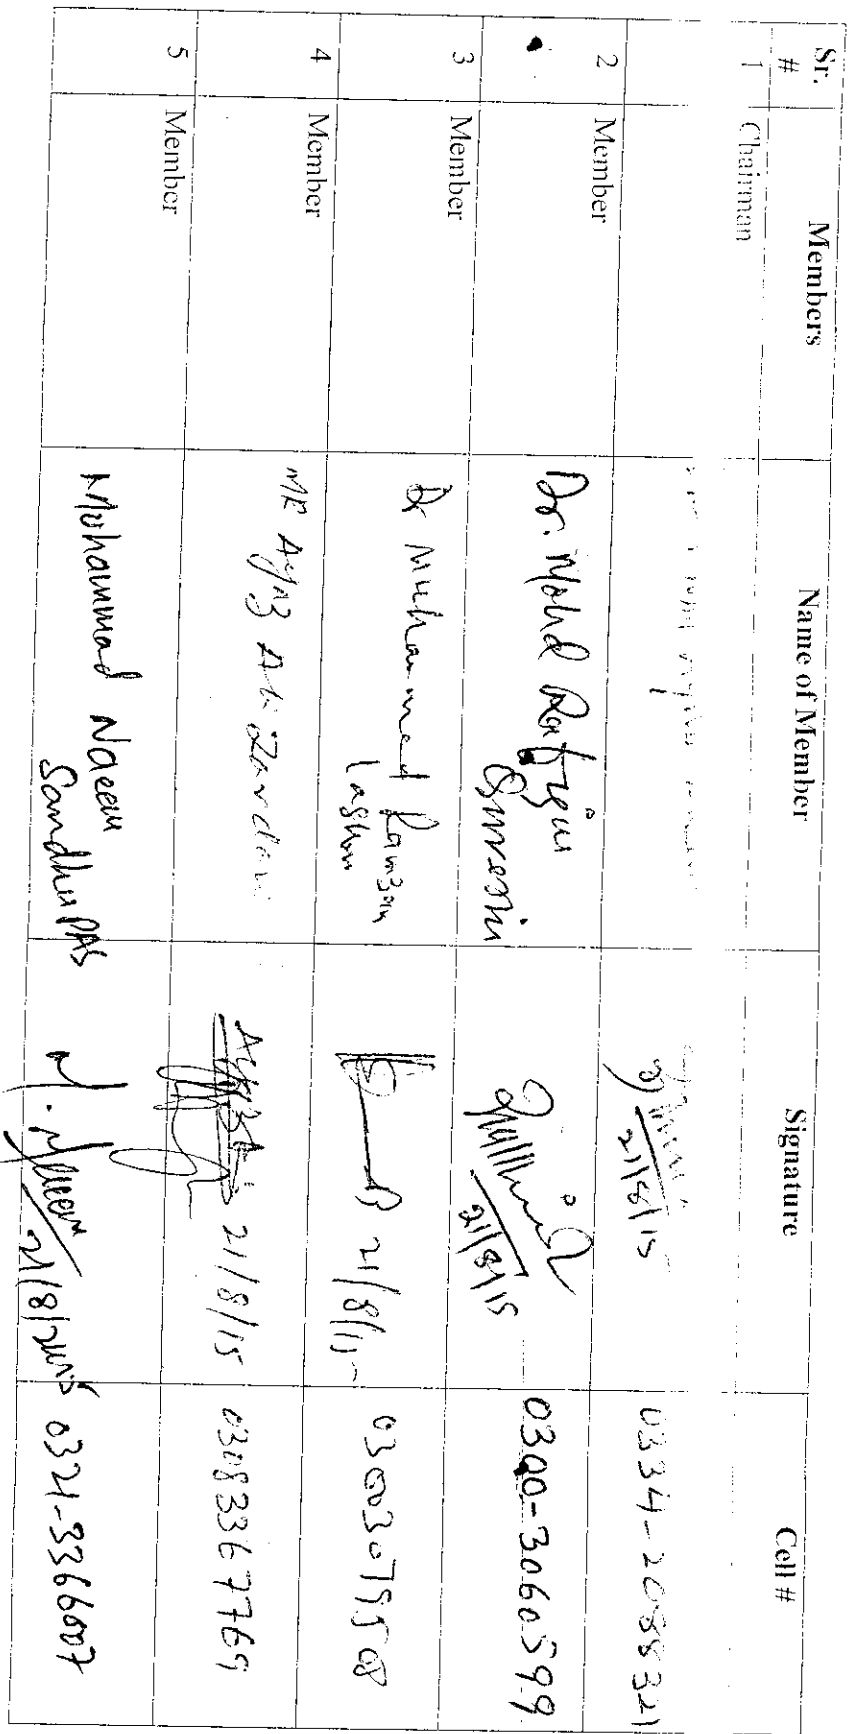 Sr. # Members Name of Member Signature Cell #
1 Chairman 21/8/15 0334-2088321
2 Member Dr. Mohd Rafique Qureshi 21/8/15 0300-3060599
3 Member Dr Muhammad Ramzan Laghari 21/8/15 03003079508
4 Member MR Ayaz Ali Zardari 21/8/15 03083367769
5 Member Mohammad Naeem Sandhu PAS M. Naeem 21/8/2015 0321-3366007